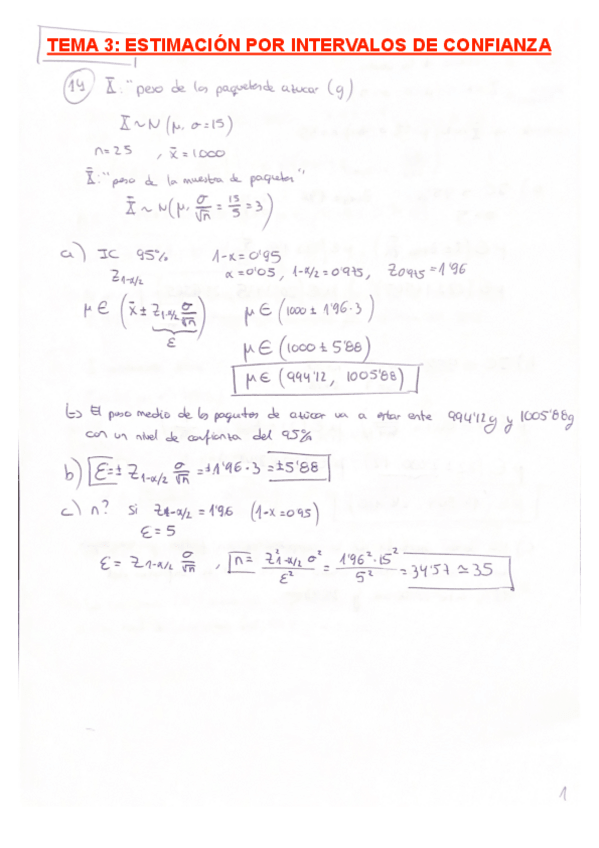 TEMA 3: ESTIMACIÓN POR INTERVALOS DE CONFIANZA
14 X: "peso de los paquetes de azucar (g)
X ~ N (μ, σ = 15)
n = 25 , x̄ = 1000
X̄: "peso de la muestra de paquetes"
X̄ ~ N (μ, σ/√n = 15/5 = 3)
a) IC 95% 1-α = 0'95
Z1-α/2 α = 0'05, 1-α/2 = 0'975, Z0'975 = 1'96
μ ∈ (x̄ ± Z1-α/2 σ/√n) μ ∈ (1000 ± 1'96·3)
ε
μ ∈ (1000 ± 5'88)
μ ∈ (994'12, 1005'88)
↳ El peso medio de los paquetes de azúcar va a estar ente 994'12g y 1005'88g
con un nivel de confianza del 95%
b) ε = ± Z1-α/2 σ/√n = ±1'96·3 = ±5'88
c) n? si Z1-α/2 = 1'96 (1-α = 0'95)
ε = 5
ε = Z1-α/2 σ/√n , n = Z²1-α/2 σ²/ε² = 1'96²·15²/5² = 34'57 ≃ 35
1